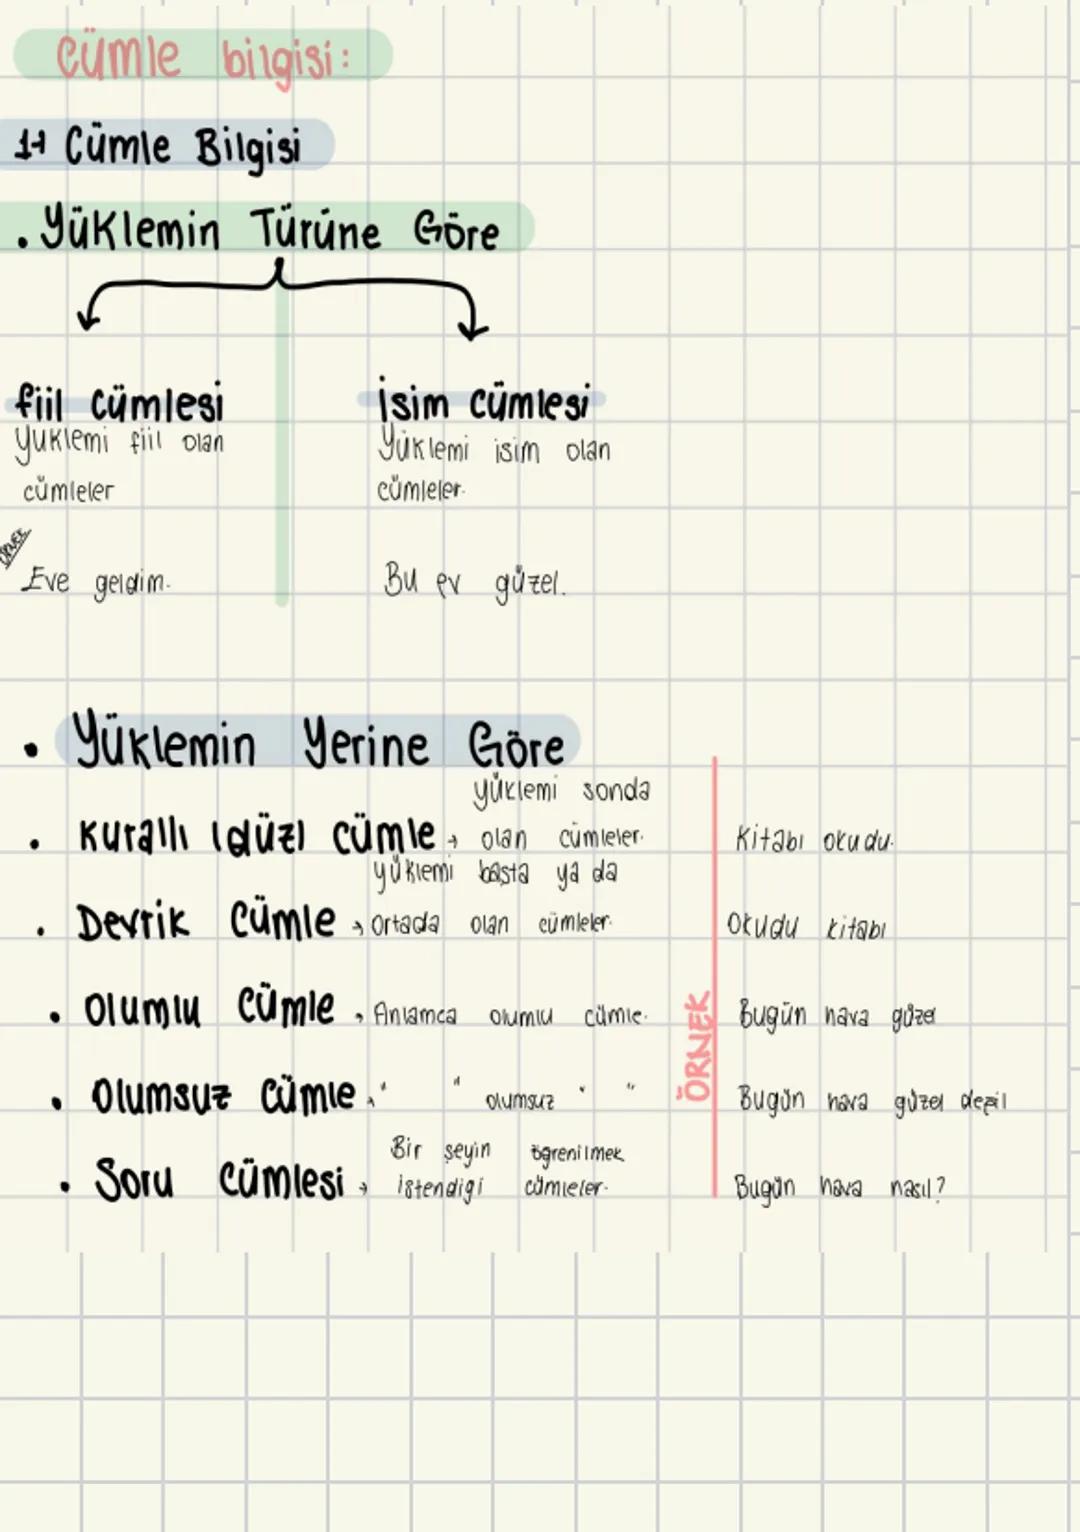 Cümle bilgisi:
1-) Cümle Bilgisi
. Yüklemin Türüne Göre
fiil cümlesi
Yüklemi fiil olan
cümleler
ÖRNEK
Eve geldim.
İsim cümlesi
Yüklemi isim olan
cümleler.
Bu ev güzel.
• Yüklemin Yerine Göre
• Kurallı (düz) cümle → yüklemi sonda
olan cümleler.
Kitabı okudu.
• Devrik Cümle → yüklemi başta ya da
ortada olan cümleler.
Okudu kitabı
• Olumlu Cümle → Anlamca olumlu cümle.
Bugün hava güzel
• Olumsuz Cümle → " " olumsuz " "
Bugün hava güzel değil
• Soru Cümlesi → Bir şeyin öğrenilmek
istendiği cümleler.
Bugün hava nasıl?
ÖRNEK